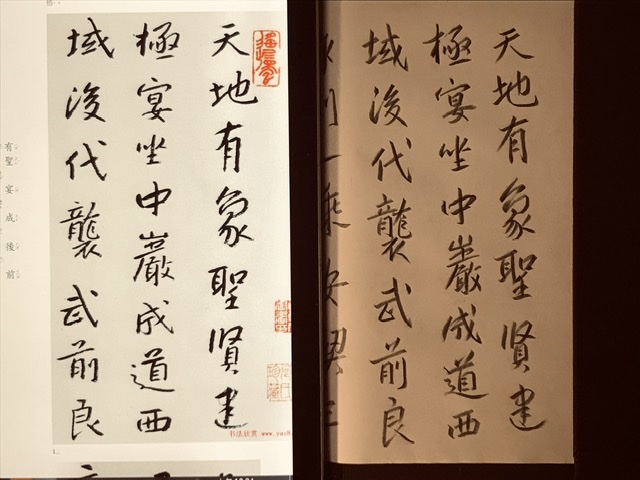 天地有象聖賢建
極宴坐中巖成道西
域後代襲武前良
有聖宴成後前
书法欣赏
天地有象聖賢建
極宴坐中巖成道西
域後代襲武前良